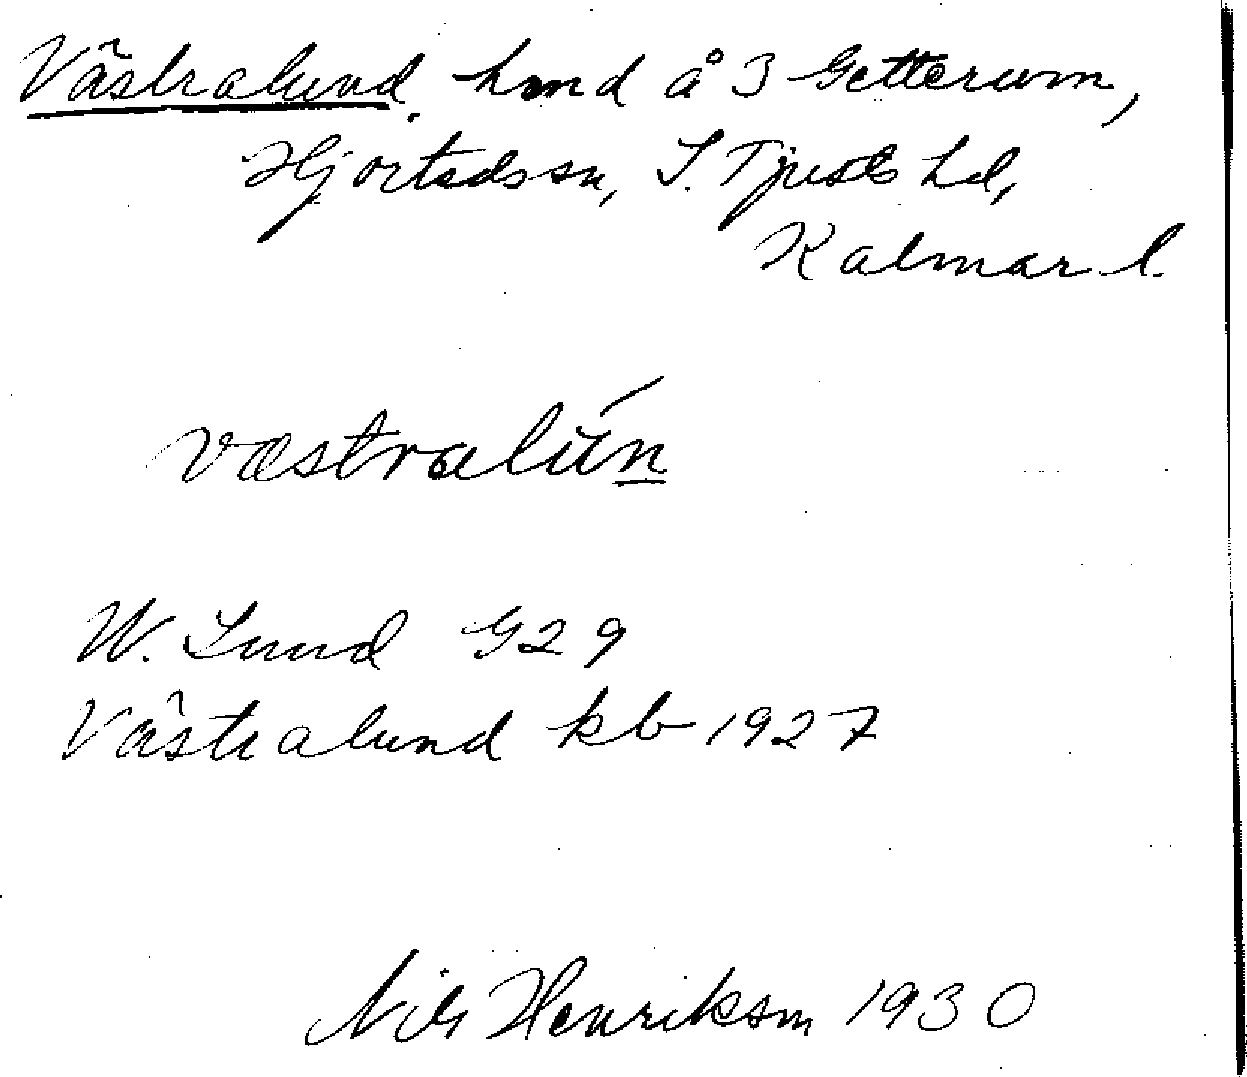 Västralund, hmd å 3 Getterum,
Hjorteds sn, S. Tjusts hd,
Kalmar l.
væstralún
W. Lund G 29
Västralund kb 1927
Nils Henriksson 1930